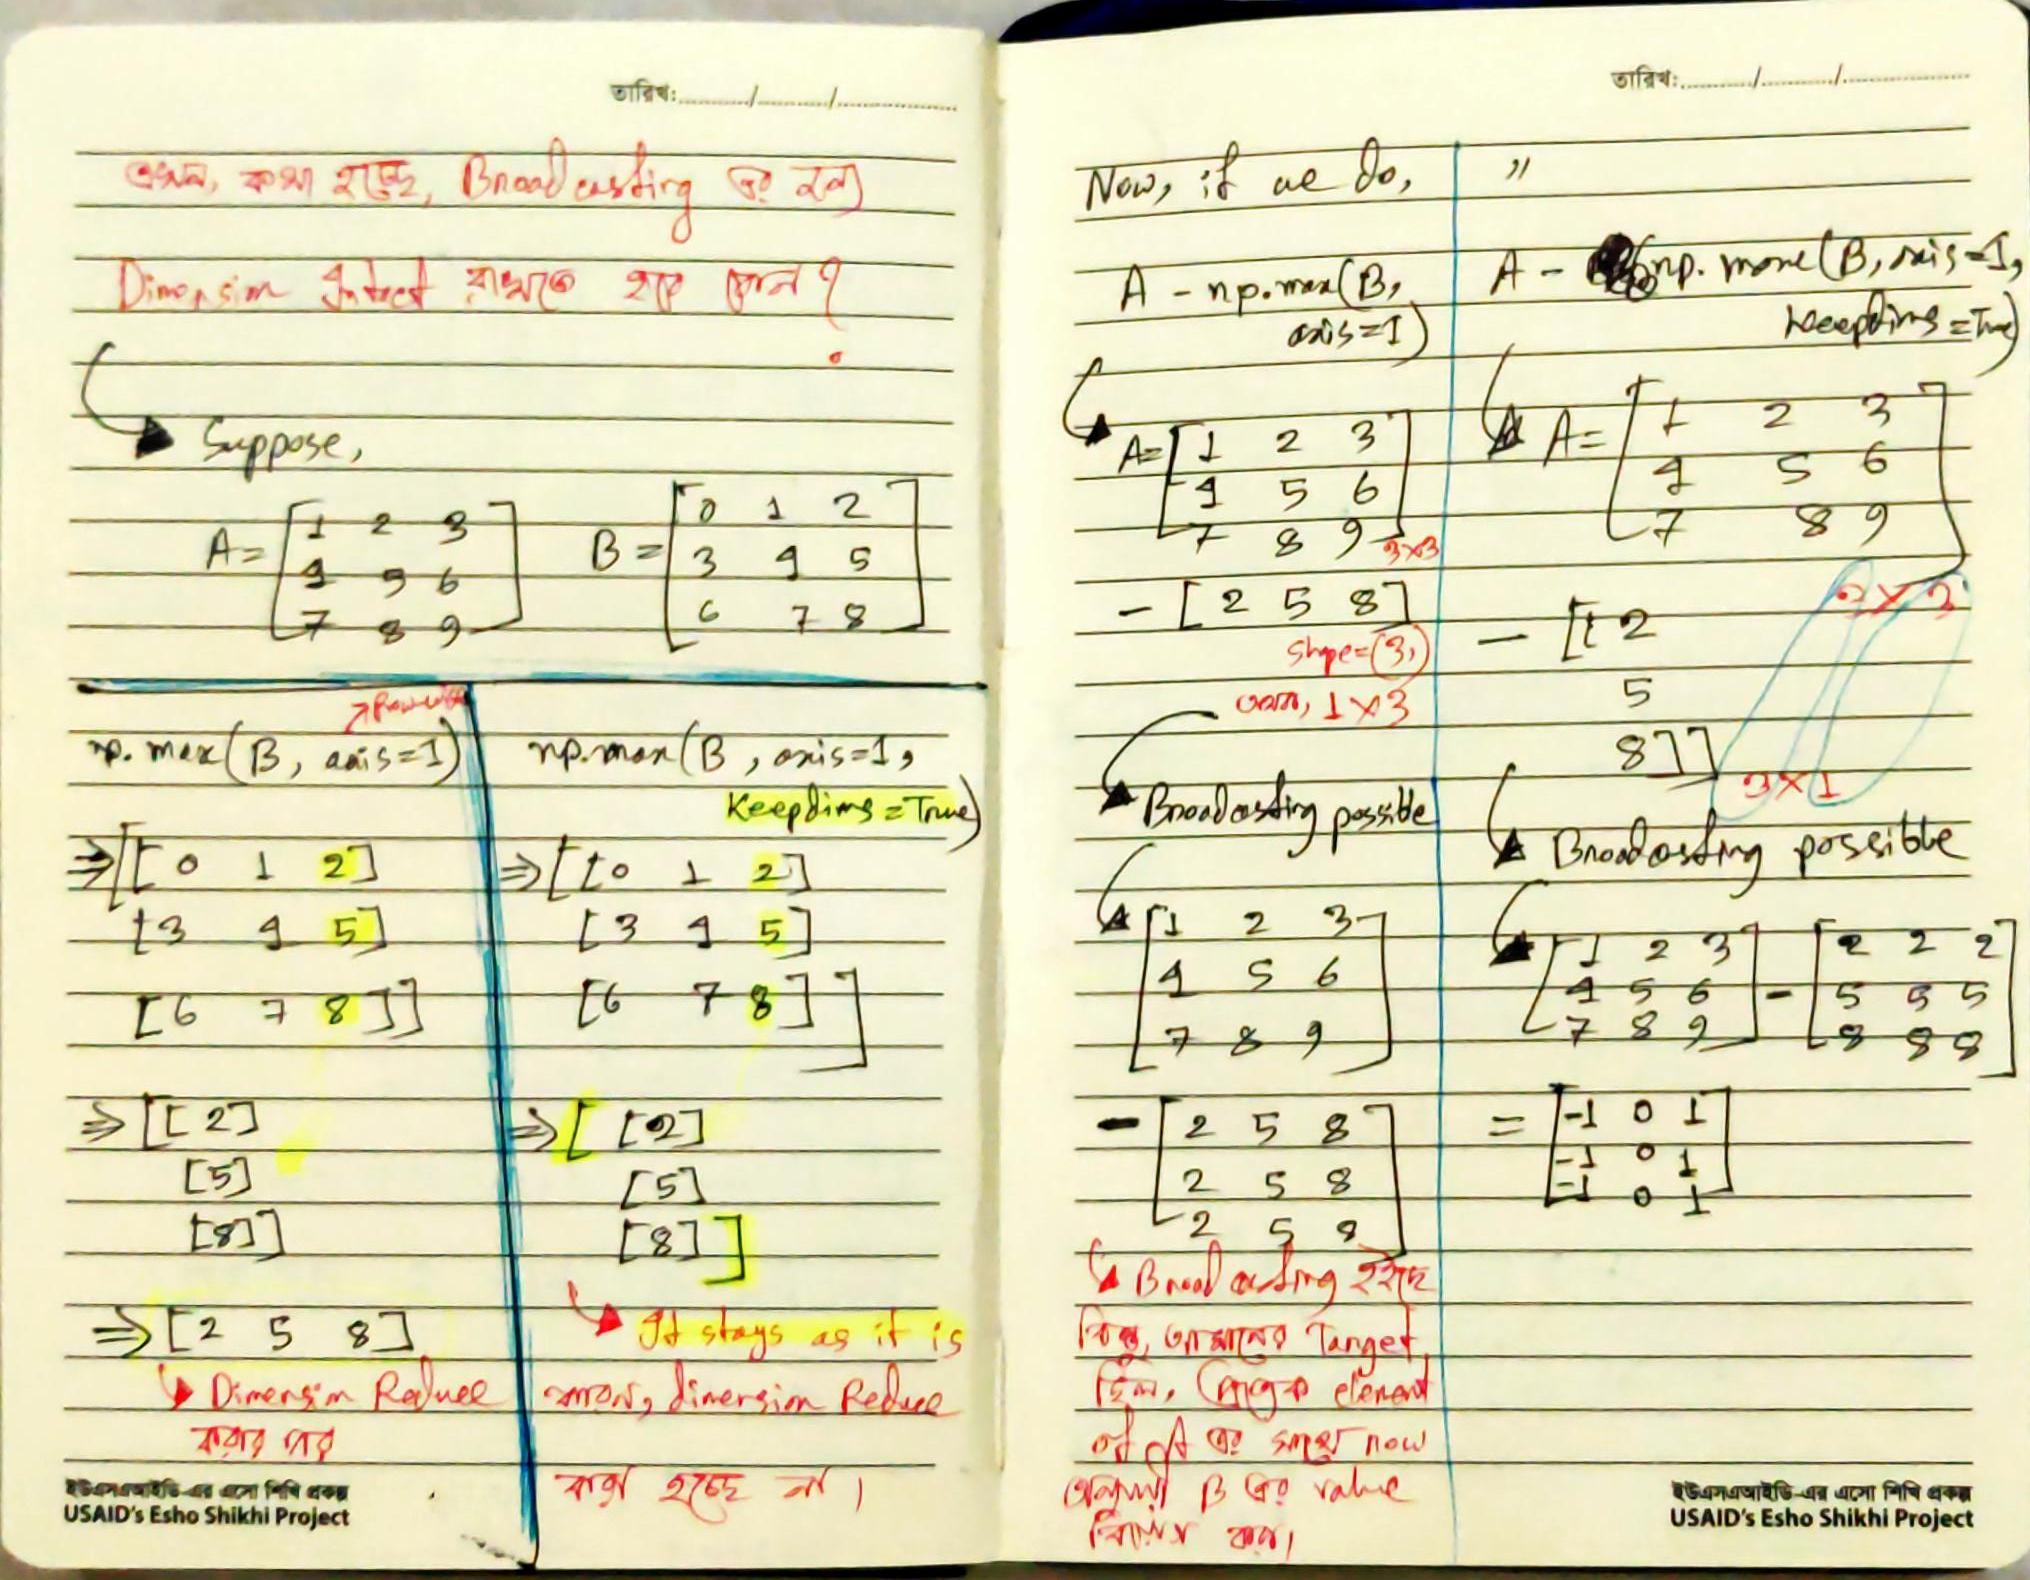 তারিখ:............/............/....................
এখন, কথা হচ্ছে, Broadcasting এর জন্য
Dimension Intact রাখতে হবে কেন?
Suppose,
A= [1 2 3
4 5 6
7 8 9]
B = [0 1 2
3 4 5
6 7 8]
np.max(B, axis=1)
⇒ [[0 1 2]
[3 4 5]
[6 7 8]]
⇒ [[2]
[5]
[8]]
⇒ [2 5 8]
Dimension Reduce
করার পর
np.max(B, axis=1,
Keepdims=True)
⇒ [[0 1 2]
[3 4 5]
[6 7 8]]
⇒ [[2]
[5]
[8]]
It stays as it is
কারন, dimension Reduce
করা হচ্ছে না।
ইউএসএআইডি-এর এসো শিখি প্রকল্প
USAID's Esho Shikhi Project
তারিখ:............/............/....................
Now, if we do,
A - np.max(B,
axis=1)
A= [1 2 3
4 5 6
7 8 9] 3×3
- [2 5 8]
shape=(3,)
1×3
Broadcasting possible
[1 2 3
4 5 6
7 8 9]
- [2 5 8
2 5 8
2 5 8]
Broadcasting হইছে
কিন্তু, আমাদের Target
ছিল, প্রত্যেক element
of A এর সাথে row
অনুযায়ী B এর value
বিয়োগ করা।
"
A - np.max(B, axis=1,
Keepdims=True)
A= [1 2 3
4 5 6
7 8 9]
3×3
- [[2
5
8]]
3×1
Broadcasting possible
[1 2 3
4 5 6
7 8 9] - [2 2 2
5 5 5
8 8 8]
= [-1 0 1
-1 0 1
-1 0 1]
ইউএসএআইডি-এর এসো শিখি প্রকল্প
USAID's Esho Shikhi Project